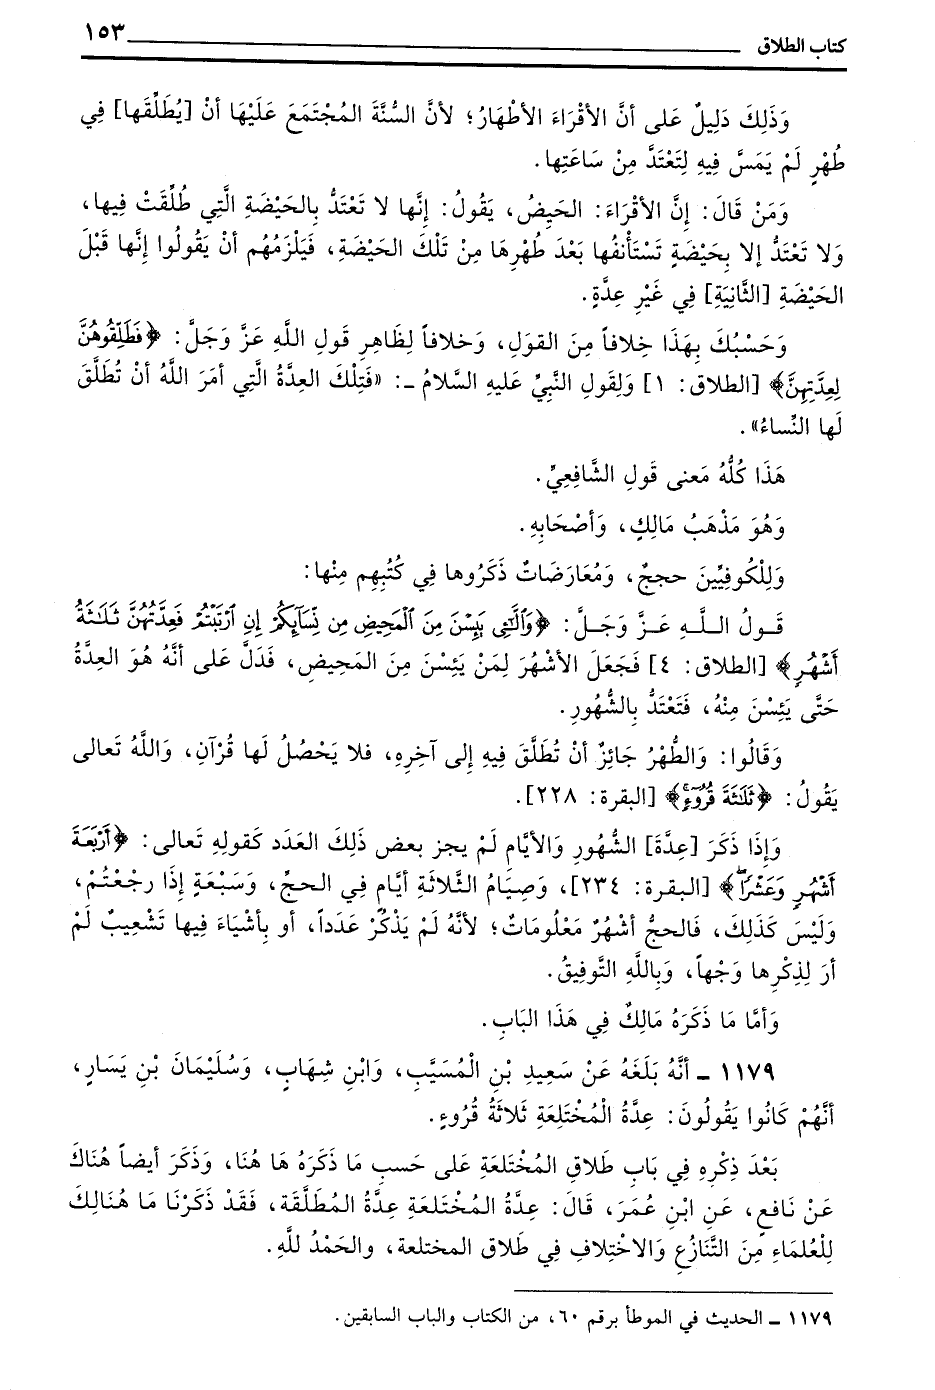 كتاب الطلاق ١٥٣
وَذَلِكَ دَلِيلٌ عَلى أنَّ الأقْرَاءَ الأطْهَارُ؛ لأنَّ السُّنَّةَ المُجْتَمَعَ عَلَيْهَا أنْ [يُطَلِّقَها] فِي
طُهْرٍ لَمْ يَمَسَّ فِيهِ لِتَعْتَدَّ مِنْ سَاعَتِها.
وَمَنْ قَالَ: إِنَّ الأقْرَاءَ: الحَيِضُ، يَقُولُ: إِنَّها لا تَعْتَدُّ بِالحَيْضَةِ الَّتِي طُلِّقَتْ فِيها،
وَلا تَعْتَدُّ إلا بِحَيْضَةٍ تَسْتَأْنفُها بَعْدَ طُهْرِهَا مِنْ تَلْكَ الحَيْضَةِ، فَيَلْزَمُهُم أنْ يَقُولُوا إنَّها قَبْلَ
الحَيْضَةِ [الثَّانِيَةِ] فِي غَيْرِ عِدَّةٍ.
وَحَسْبُكَ بِهَذَا خِلافاً مِنَ القوَلِ، وَخلافاً لِظَاهِرِ قَولِ اللَّهِ عَزَّ وَجَلَّ: ﴿فَطَلِّقُوهُنَّ
لِعِدَّتِهِنَّ﴾ [الطلاق: ١] وَلِقَولِ النَّبِيِّ عَليهِ السَّلامُ ـ: «فَتِلْكَ العِدَّةُ الَّتِي أمَرَ اللَّهُ أنْ تُطَلَّقَ
لَها النِّساءُ».
هَذَا كُلُّهُ مَعنى قَولِ الشَّافِعِيِّ.
وَهُوَ مَذْهَبُ مَالِكٍ، وَأصْحَابِهِ.
وَلِلْكُوفِيِّينَ حججٌ، وَمُعَارَضَاتٌ ذَكَرُوها فِي كُتُبِهِم مِنْها:
قَـولُ اللَّـهِ عَـزَّ وَجَـلَّ: ﴿وَٱلَّٰٓـِٔي يَئِسْنَ مِنَ ٱلْمَحِيضِ مِن نِّسَآئِكُمْ إِنِ ٱرْتَبْتُمْ فَعِدَّتُهُنَّ ثَلَـٰثَةُ
أَشْهُرٍ﴾ [الطلاق: ٤] فَجَعَلَ الأشْهُرَ لِمَنْ يَئِسْنَ مِنَ المَحِيض، فَدَلَّ عَلى أنَّهُ هُوَ العِدَّةُ
حَتَّى يَئِسْنَ مِنْهُ، فَتَعْتَدُّ بِالشُّهُورِ.
وَقَالُوا: وَالطُّهْرُ جَائِزٌ أنْ تُطَلَّقَ فِيهِ إلى آخِرِهِ، فلا يَحْصُلُ لَها قُرْآنِ، وَاللَّهُ تَعالى
يَقُولُ: ﴿ثَلَـٰثَةَ قُرُوٓءٍ﴾ [البقرة: ٢٢٨].
وَإِذَا ذَكَرَ [عِدَّةَ] الشُّهُورِ وَالأيَّامِ لَمْ يجز بعض ذَلِكَ العَدَد كَقولِهِ تَعالى: ﴿أَرْبَعَةَ
أَشْهُرٍ وَعَشْرًا﴾ [البقرة: ٢٣٤]، وَصِيَامُ الثَّلاثَةِ أيَّام فِي الحجِّ، وَسَبْعَةٍ إذَا رجْعْتُمْ،
وَلَيْسَ كَذَلِكَ، فَالحجُّ أشْهُرٌ مَعْلُومَاتٌ؛ لأنَّهُ لَمْ يَذْكُرْ عَدداً، أو بِأشْيَاءَ فِيها تَشْعِيبٌ لَمْ
أرَ لِذِكْرِها وَجْهاً، وَبِاللَّهِ التَّوفِيقُ.
وَأمَّا مَا ذَكَرَهُ مَالِكٌ فِي هَذَا البَابِ.
١١٧٩ ـ أنَّهُ بَلَغَهُ عَنْ سَعِيدِ بْنِ الْمُسَيَّبِ، وَابْنِ شِهَابٍ، وَسُلَيْمَانَ بْنِ يَسَارٍ،
أنَّهُمْ كَانُوا يَقُولُونَ: عِدَّةُ الْمُخْتَلِعَةِ ثَلاثَةُ قُرُوءٍ.
بَعْدَ ذِكْرِهِ فِي بَابِ طَلاقِ المُخْتَلعَةِ عَلى حَسبِ مَا ذَكَرَهُ هَا هُنَا، وَذَكَرَ أيضاً هُنَاكَ
عَنْ نَافعٍ، عَنِ ابْنِ عُمَرَ، قَالَ: عِدَّةُ الـمُخْتَلعَةِ عِدَّةُ المُطَلَّقَة، فَقَدْ ذَكَرْنَا مَا هُنَالِكَ
لِلْعُلمَاءِ مِنَ التَّنَازُعِ وَالاخْتِلافِ فِي طَلاق المختلعة، والحَمْدُ للَّهِ.
١١٧٩ ـ الحديث في الموطأ برقم ٦٠، من الكتاب والباب السابقين.